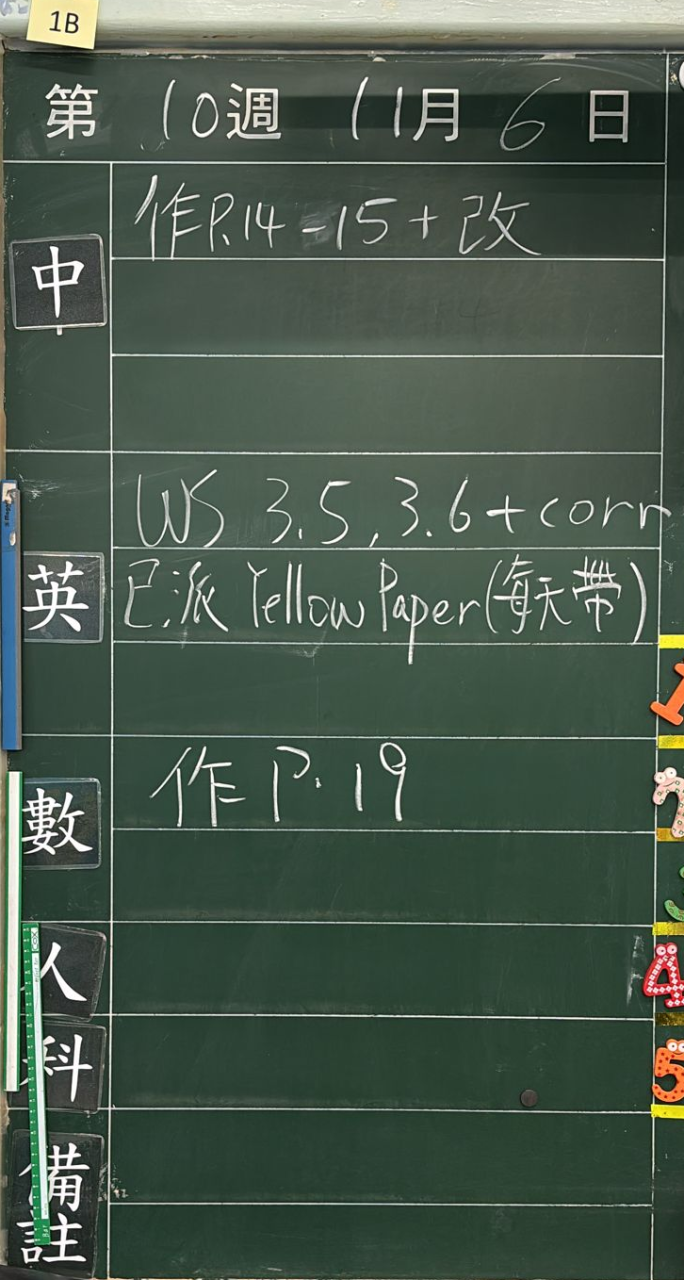 1B
第 10週 11月 6 日
中
作P.14-15+改
英
WS 3.5, 3.6+corr
已派 Yellow Paper(每天帶)
數
作 P.19
人
科
備
註
1
2
3
4
5